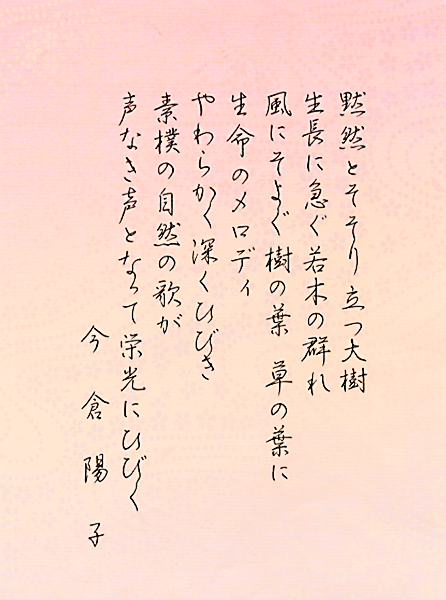 黙然とそそり立つ大樹
生長に急ぐ若木の群れ
風にそよぐ樹の葉　草の葉に
生命のメロディ
やわらかく深くひびき
素樸の自然の歌が
声なき声となって栄光にひびく
今倉陽子